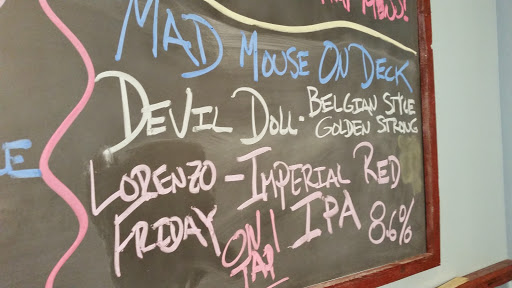 MAD MOUSE ON DECK
DEVIL DOLL - BELGIAN STYLE
GOLDEN STRONG
LORENZO - IMPERIAL RED
FRIDAY IPA 8.6%
ON
TAP!